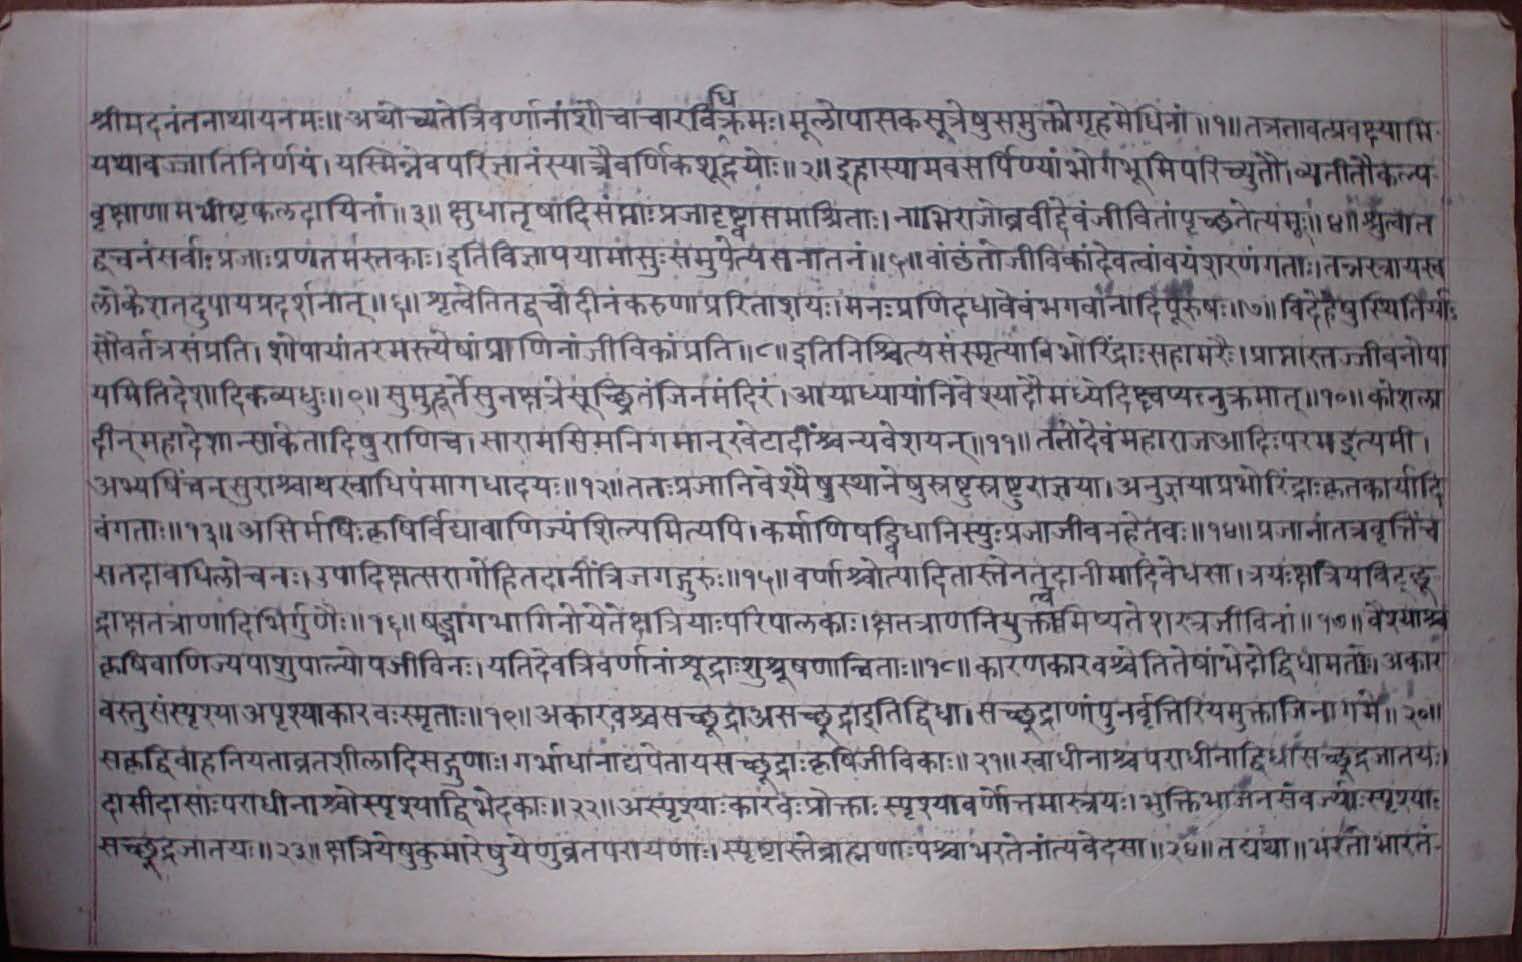 श्रीमदनंतनाथायनमः॥ अथोच्यतेत्रिवर्णानांशौचाचारविधिक्रमः।मूलोपासकसूत्रेषुसमुक्तोगृहमेधिनां॥१॥तत्रतावत्प्रवक्ष्यामि
यथावज्जातिनिर्णयं।यस्मिन्नेवपरिज्ञानंस्यात्त्रैवर्णिकशूद्रयोः॥२॥इहास्यामवसर्पिण्यांभोगभूमिपरिच्युतौ।व्यतीतौकल्प
वृक्षाणामभीष्टफलदायिनां॥३॥ क्षुधातृषादिसंप्राप्ताःप्रजादृष्ट्वासमाश्रिताः।नाभिराजोब्रवीद्देवंजीवितांपृच्छतेत्यमूः॥४॥श्रुत्वात
द्वचनंसर्वाःप्रजाःप्रणतमस्तकाः।इतिविज्ञापयामासुःसमुपेत्यसनातनं॥५॥वांछंतोजीविकांदेवत्वांवयंशरणंगताः।तन्नस्त्रायस्व
लोकेशतदुपायप्रदर्शनात्॥६॥श्रुत्वेतितद्वचोदीनंकरुणाप्रेरिताशयः।मनःप्रणिदधावेवंभगवानादिपूरुषः॥७॥विदेहेषुस्थितिर्याः
सौवर्तत्रसंप्रति।शोपायांतरमस्त्येषांप्राणिनांजीविकांप्रति॥८॥इतिनिश्चित्यसंस्मृत्याविभोरिंद्राःसहामरैः।प्राप्तास्तज्जीवनोपा
यमितिदेशादिकव्यधुः॥९॥सुमुहूर्तेसुनक्षत्रेसूच्छ्रितंजिनमंदिरं।आयाध्यायांनिवेश्यादौमध्येदिक्ष्वप्यनुक्रमात्॥१०॥कोशला
दीन्महादेशान्साकेतादिपुराणिच।सारामसिमनिगमान्खेटादींश्चन्यवेशयन्॥११॥ततोदेवंमहाराजआदिःपरमइत्यमी।
अभ्यषिंचन्सुराश्चाथस्वाधिपंमागधादयः॥१२॥ततःप्रजानिवेश्यैषुस्थानेषुस्रष्टुःस्रष्टुराज्ञया।अनुज्ञयाप्रभोरिंद्राःकृतकार्यादि
वंगताः॥१३॥असिर्मषिःकृषिर्विद्यावाणिज्यंशिल्पमित्यपि।कर्माणिषड्विधानिस्युःप्रजाजीवनहेतवः॥१४॥प्रजानांतत्रवृत्तिंच
सतदावधिलोचनः।उपादिक्षत्सरागोहितदानींत्रिजगद्गुरुः॥१५॥वर्णाश्चोत्पादितास्तेनतत्त्वदानीमादिवेधसा।त्रयःक्षत्रियविट्छू
द्राक्षतत्राणादिभिर्गुणैः॥१६॥षड्भागभागिनोयेतेक्षत्रियाःपरिपालकाः।क्षतत्राणनियुक्तत्वमिष्यतेशस्त्रजीविनां॥१७॥वैश्याश्च
कृषिवाणिज्यपाशुपाल्योपजीविनः।यतिदेवत्रिवर्णानांश्रूद्राःशुश्रूषणान्विताः॥१८॥कारणकारवश्चेतितेषांभेदोद्विधामतोः।अकार
वस्तुसंस्पृश्याअपृश्याकारवःस्मृताः॥१९॥अकारवश्चसच्छूद्राअसच्छूद्राइतिद्विधा।सच्छूद्राणांपुनर्वृत्तिरियमुक्ताजिनागमे॥२०॥
सकृद्विवाहनियताव्रतशीलादिसद्गुणाः।गर्भाधानाद्यपेतायसच्छूद्राःकृषिजीविकाः॥२१॥स्वाधीनाश्चपराधीनाद्विधासच्छूद्रजातयः।
दासीदासाःपराधीनाश्चोस्पृश्याद्विभेदकाः॥२२॥अस्पृश्याःकारवःप्रोक्ताःस्पृश्यावर्णोत्तमास्त्रयः।भुक्तिभाजनसंवर्ज्याःस्पृश्याः
सच्छूद्रजातयः॥२३॥क्षत्रियेषुकुमारेषुयेणुव्रतपरायणाः।स्पृष्टास्तेब्राह्मणाःपश्चाभरतेनांत्यवेदसा॥२४॥तद्यथा॥भरतोभारतं-